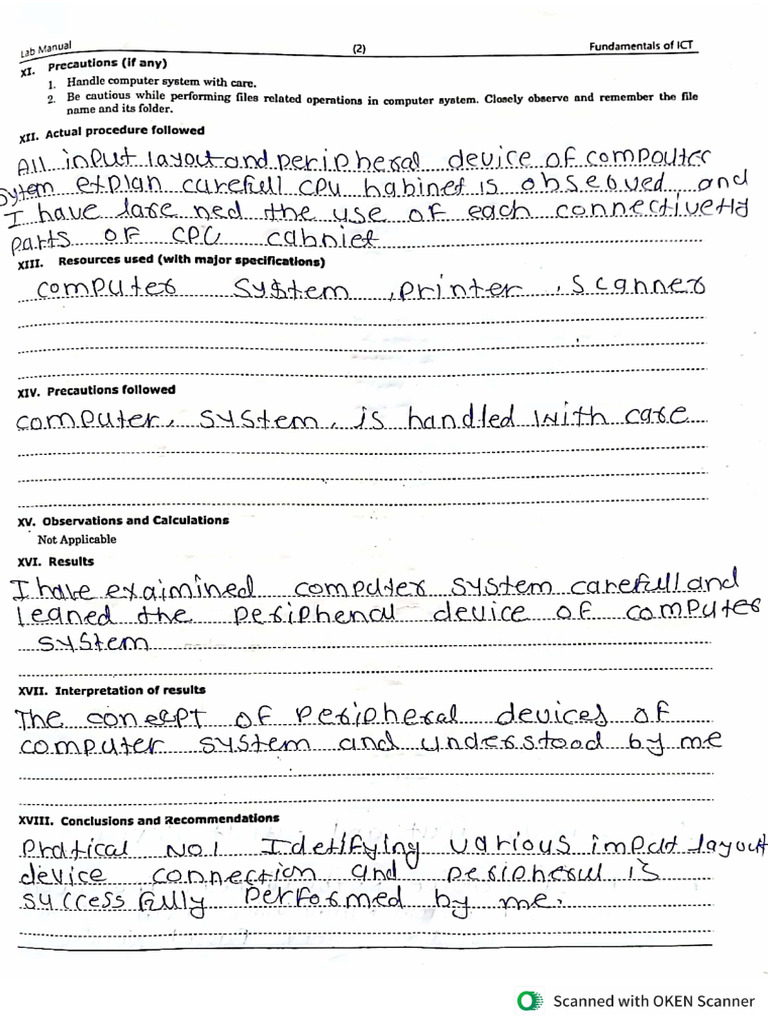 Lab Manual (2) Fundamentals of ICT
XI. Precautions (if any)
1. Handle computer system with care.
2. Be cautious while performing files related operations in computer system. Closely observe and remember the file
name and its folder.
XII. Actual procedure followed
All input layout and peripheral device of compouter
Sytem etplan carefull CPU habinet is obseoved and
I have lare ned the use of each connectivetly
parts of CPU cabniet
XIII. Resources used (with major specifications)
computer system, printer, scanner
XIV. Precautions followed
computer, system, is handled with care
XV. Observations and Calculations
Not Applicable
XVI. Results
I have exaimined computer system carefull and
leaned the periphenal device of computer
system
XVII. Interpretation of results
The concept of peripheral devices of
computer system and understood by me
XVIII. Conclusions and Recommendations
pratical No.1 Idetifying various imput layout
device connection and peripherul is
successfully performed by me.
Scanned with OKEN Scanner